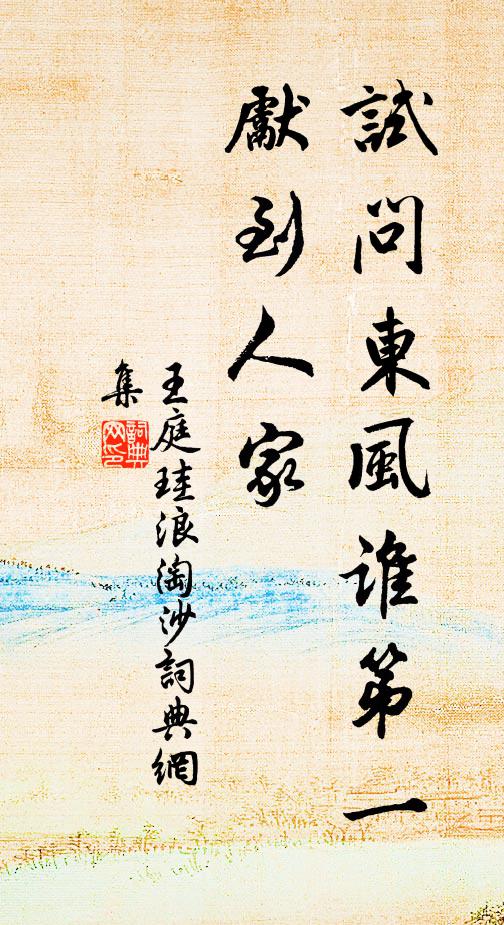 試問東風誰第一
獻到人家
王庭珪浪淘沙詞典網
集
詞典
网印